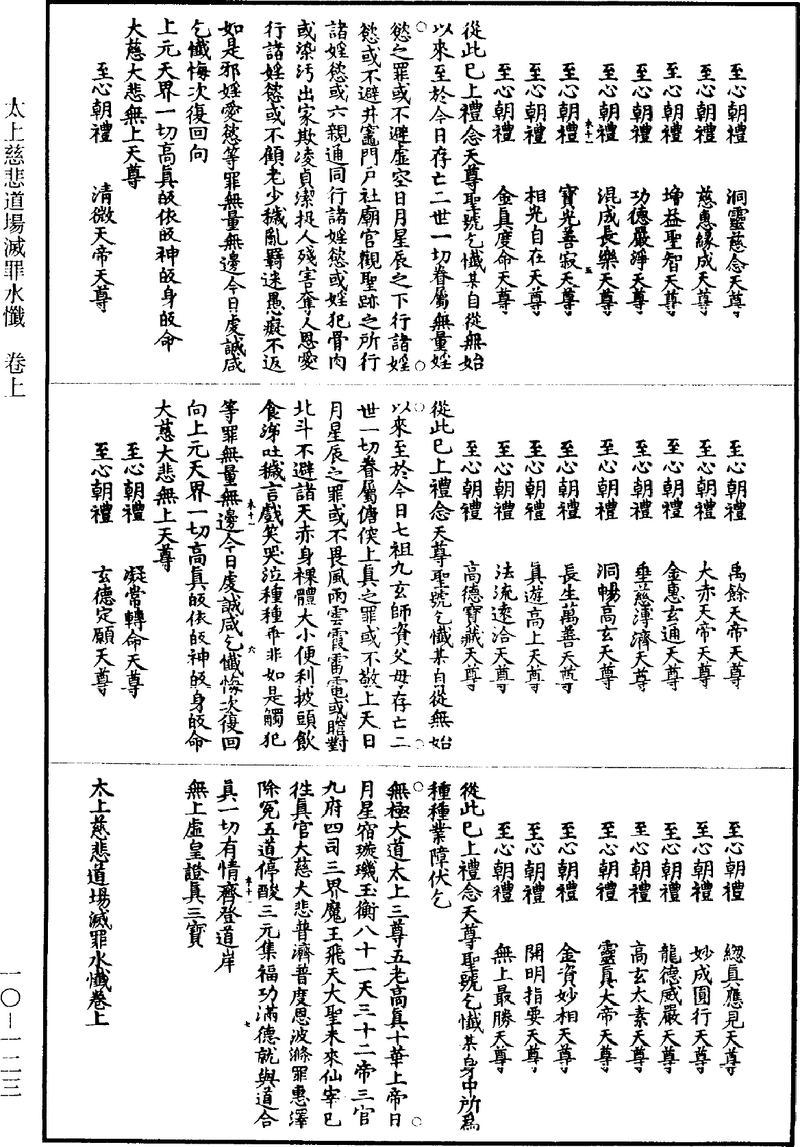 至心朝禮　洞靈慈念天尊
至心朝禮　慈惠緣成天尊
至心朝禮　增益聖智天尊
至心朝禮　功德嚴淨天尊
至心朝禮　混成長樂天尊
至心朝禮　寶光善寂天尊
至心朝禮　相光自在天尊
至心朝禮　金真度命天尊
從此已上禮念天尊聖號乞懺某自從無始
以來至於今日存亡二世一切眷屬無量婬
慾之罪或不避虛空日月星辰之下行諸婬
慾或不避井竈門戶社廟官觀聖跡之所行
諸婬慾或六親通同行諸婬慾或婬犯骨肉
或染汚出家欺凌貞潔投人殘害奪人恩愛
行諸婬慾或不顧老少穢亂羇迷愚癡不返
如是邪婬愛慾等罪無量無邊今日虔誠咸
乞懺悔次復回向
上元天界一切高真皈依皈神皈身皈命
大慈大悲無上天尊
至心朝禮　清微天帝天尊
至心朝禮　禹餘天帝天尊
至心朝禮　大赤天帝天尊
至心朝禮　金惠玄通天尊
至心朝禮　垂慈溥濟天尊
至心朝禮　洞暢高玄天尊
至心朝禮　長生萬善天尊
至心朝禮　真遊高上天尊
至心朝禮　法流遠洽天尊
至心朝禮　高德寶藏天尊
從此已上禮念天尊聖號乞懺某自從無始
以來至於今日七祖九玄師資父母存亡二
世一切眷屬傏突上真之罪或不敬上天日
月星辰之罪或不畏風雨雲霞雷電或瞻對
北斗不避諸天赤身裸體大小便利披頭飲
食涕吐穢言戲笑哭泣種種乖非如是觸犯
等罪無量無邊今日虔誠咸乞懺悔次復回
向上元天界一切高真皈依皈神皈身皈命
大慈大悲無上天尊
至心朝禮　凝常轉命天尊
至心朝禮　玄德定願天尊
至心朝禮　緫真應見天尊
至心朝禮　妙成圓行天尊
至心朝禮　龍德威嚴天尊
至心朝禮　高玄太素天尊
至心朝禮　靈真大帝天尊
至心朝禮　金資妙相天尊
至心朝禮　開明指要天尊
至心朝禮　無上最勝天尊
從此已上禮念天尊聖號乞懺某身中所爲
種種業障伏乞
無極大道太上三尊五老高真十華上帝日
月星宿璇璣玉衡八十一天三十二帝三官
九府四司三界魔王飛天大聖未來仙宰已
徃真官大慈大悲普濟普度恩波滌罪惠澤
除冤五道停酸三元集福功滿德就與道合
真一切有情齊登道岸
無上虛皇證真三寶
太上慈悲道場滅罪水懺卷上
太上慈悲道場滅罪水懺　卷上
一〇—一二三